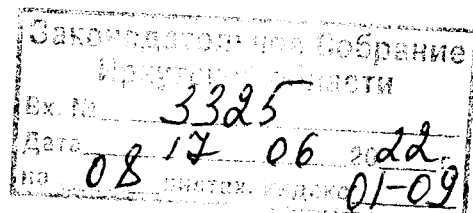 Законодательное Собрание
Иркутской области
Вх. № 3325
Дата 17 06 2022 г.
на 08 листах. индекс 01-09